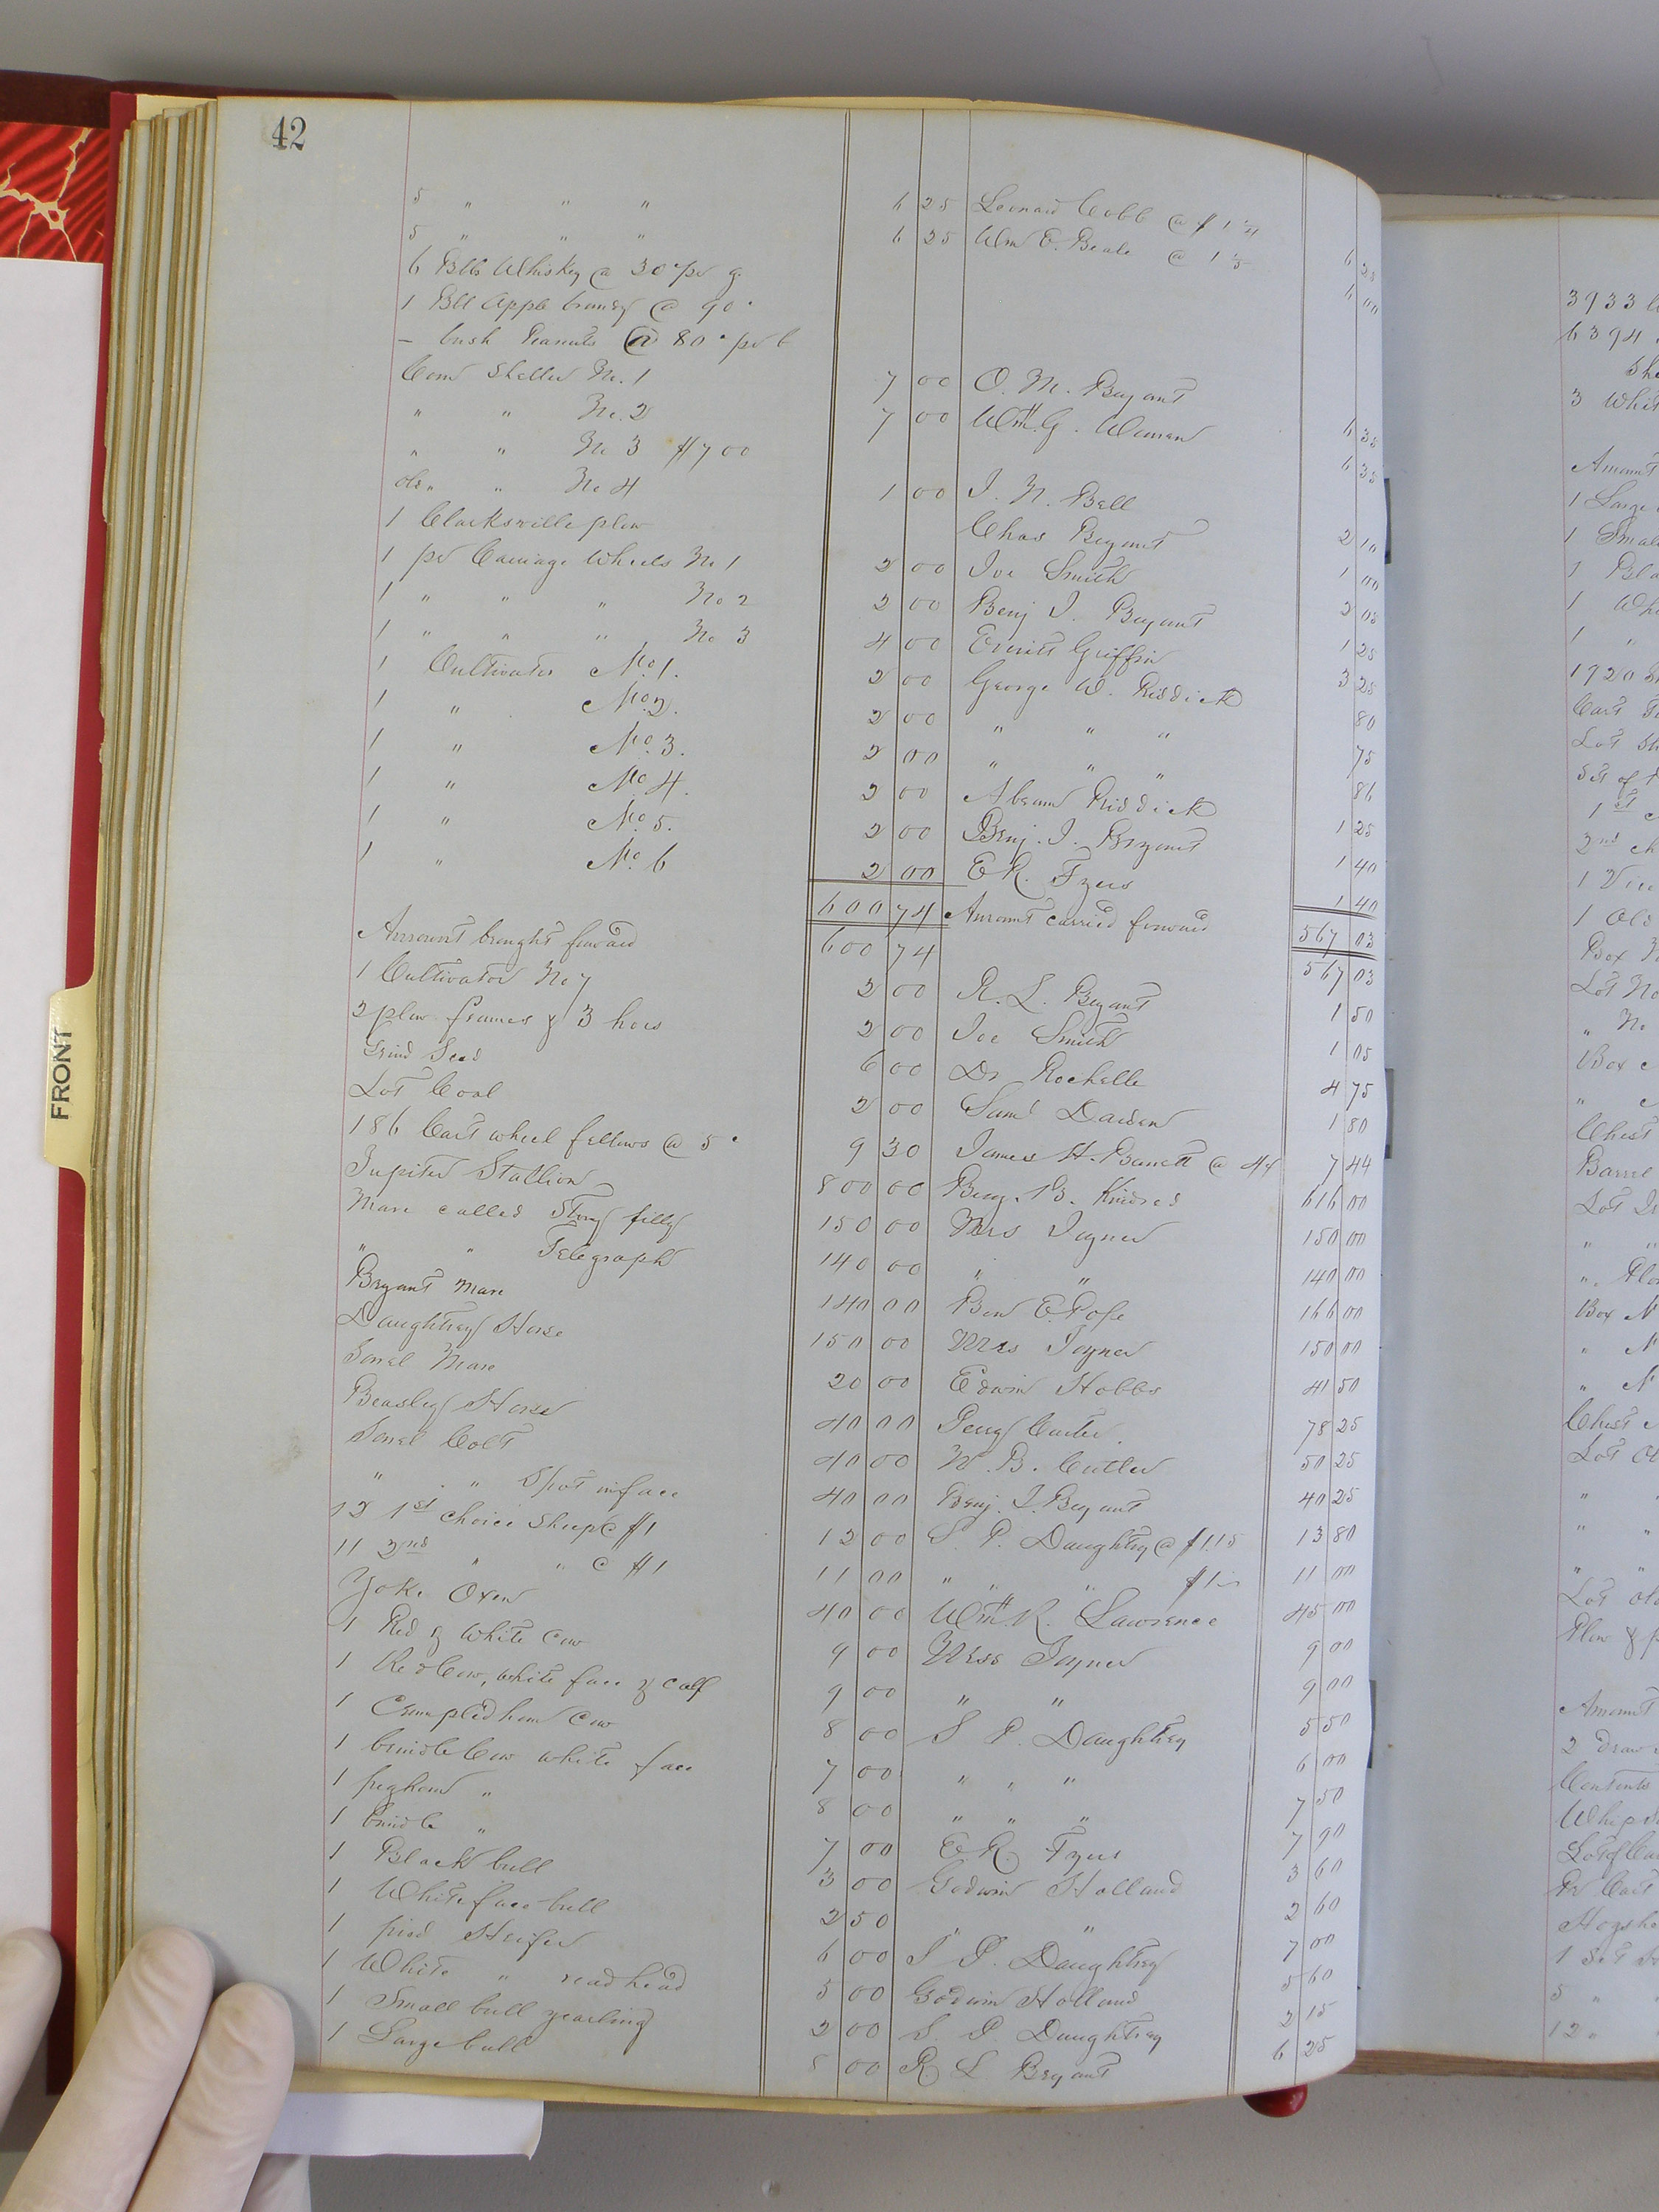 42
5 " " " 6 25 Leonard Cobb @ $ 1 ¼ 6 25
5 " " " 6 25 Wm E. Beale @ 1 6 00
6 Blls Whiskey @ 30 c pr g
1 Bll Apple brandy @ 90 c
— bush Peanuts @ 80 c pr b
Corn Sheller No. 1 7 00 O. M. Bryant 6 35
" " No. 2 7 00 Wm. G. 6 35
" " No 3 $7 00
old " " No 4 1 00 J. N. Bell 2 10
1 Clarksville plow Chas Bryant 1 00
1 pr Carriage Wheels No 1 2 00 Joe Smith 2 05
1 " " " No 2 2 00 Benj J. Bryant 1 25
1 " " " No 3 4 00 Everitt Griffin 3 25
1 Cultivator No. 1. 2 00 George W. Riddick 80
1 " No. 2. 2 00 " " " 75
1 " No. 3. 2 00 " " " 86
1 " No. 4. 2 00 Abram Riddick 1 25
1 " No. 5. 2 00 Benj. J. Bryant 1 40
1 " No. 6 2 00 E R. Tyus 1 40
600 74 Amount carried forward 567 03
Amount brought forward 600 74 567 03
1 Cultivator No 7 2 00 R. L. Bryant 1 50
2 plow frames & 3 hoes 2 00 Joe Smith 1 05
Grind 6 00 Dr Rochelle 4 75
Lot Coal 2 00 Saml Darden 1 80
186 Cart wheel fellows @ 5 c 9 30 James H. Barrett @ 4 c 7 44
Jupiter Stallion 800 00 Benj. B. Kindred 616 00
Mare called Story filly 150 00 Mrs Joyner 150 00
" " Telegraph 140 00 " " 140 00
Bryant Mare 140 00 Ben E. Pope 166 00
Daughtrey Horse 150 00 Mrs Joyner 150 00
Sorrel Mare 20 00 Edwin Hobbs 41 50
Beasley Horse 40 00 Carter. 78 25
Sorrel Colt 40 00 W. B. Cutler 50 25
" " Spot in face 40 00 Benj. J. Bryant 40 25
12 1st choice Sheep @ $1 12 00 S. P. Daughtrey @ $1.15 13 80
11 2nd " " @ $1 11 00 " " " $1 11 00
Yoke Oxen 40 00 Wm. R. Lawrence 45 00
1 Red & White Cow 9 00 Mrs Joyner 9 00
1 Red Cow, white face & calf 9 00 " " 9 00
1 Crumpled horn Cow 8 00 S P. Daughtrey 5 50
1 brindle Cow white face 7 00 " " " 6 00
1 peghorn " 8 00 " " " 7 50
1 brindle " 7 00 E. R. Tyus 7 90
1 Black bull 3 00 Godwin Holland 3 60
1 White face bull 2 50 " " 2 60
1 pied Heifer 6 00 S P. Daughtrey 7 00
1 White " read head 5 00 Godwin Holland 5 60
1 Small bull yearling 2 00 S. P. Daughtrey 2 15
1 Large bull 8 00 R L Bryant 6 25
FRONT
3933
6394
3 Whit
Amount
1 Large
1 Small
1
1 Wh
1 "
1920
Cart
Lot
Set of
1st
2nd ch
1
1 Old
Box
Lot No
" No
Box
Chest
Barrel
Lot
Box N
" N
" N
Chest
Lot
Lot old
Plow & p
Amount
2 Draw
Contents
Whip
Lot of
Pr Cart
Hogsh
1 Set
5 "
12 "